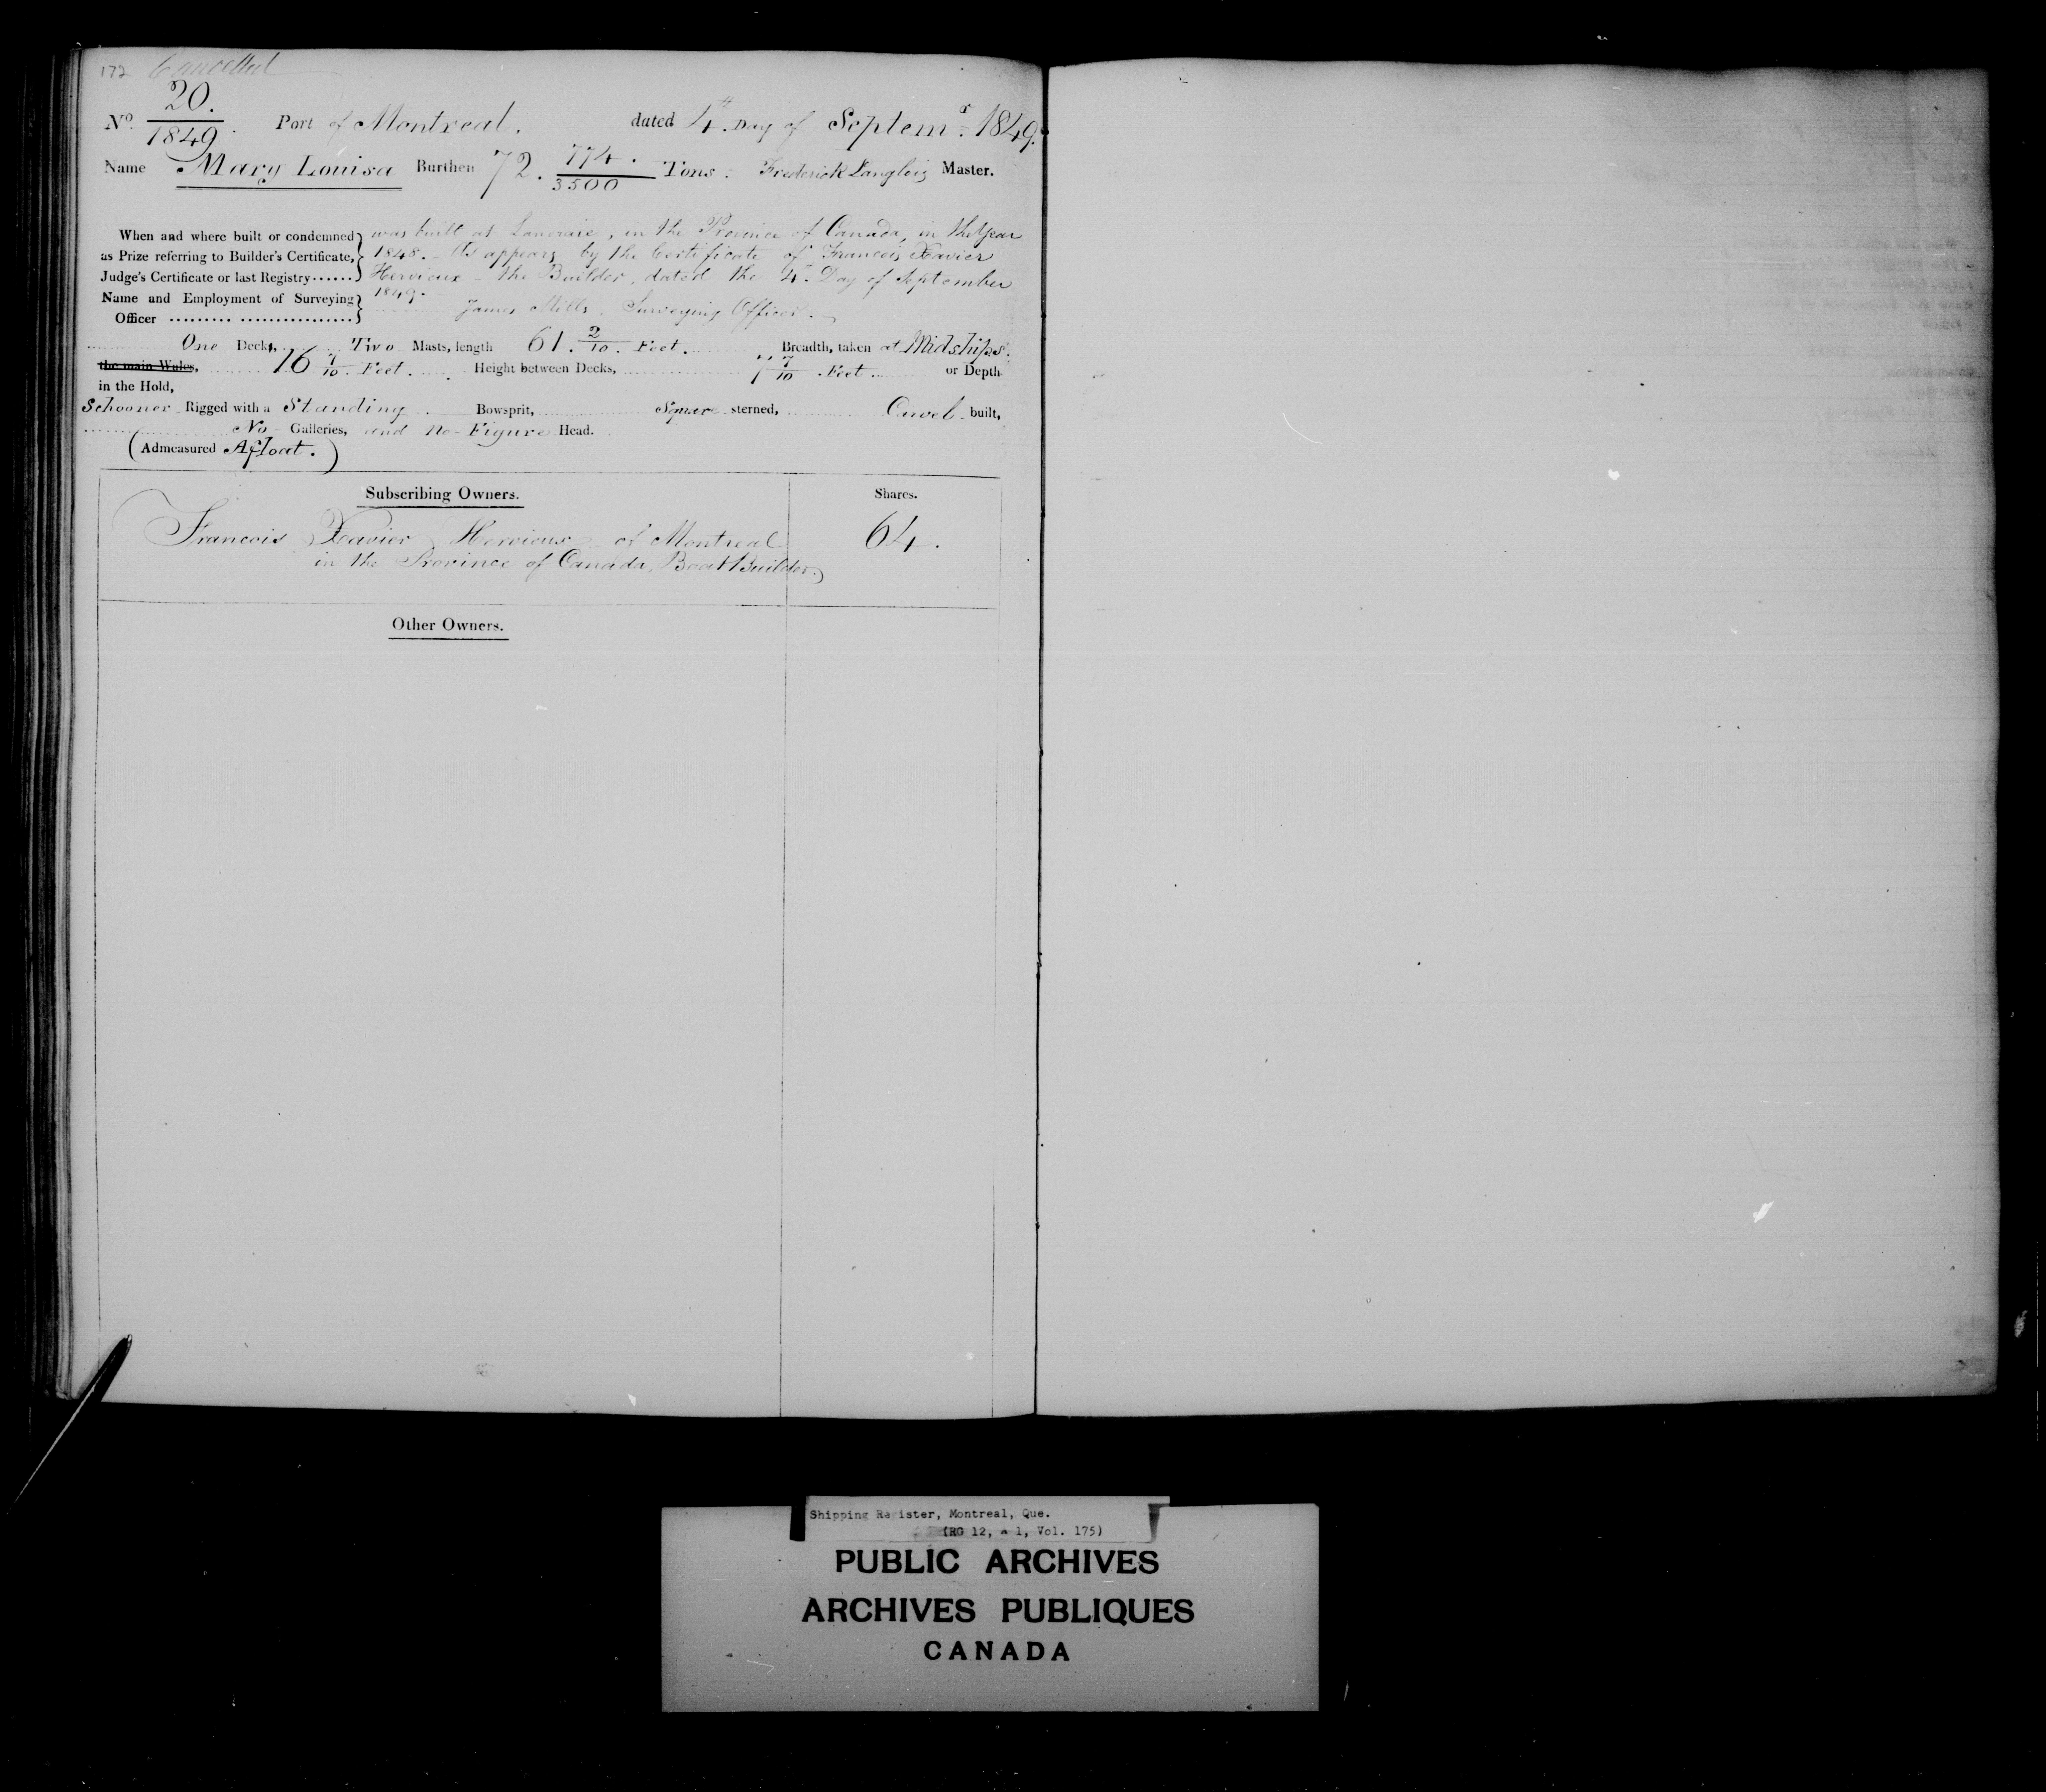 172 Cancelled
No. 20. / 1849. Port of Montreal. dated 4th Day of Septemr. 1849.
Name Mary Louisa Burthen 72. 774. / 3500 Tons: Frederick Langlois Master.
When and where built or condemned was built at Lanoraie, in the Province of Canada, in the Year
as Prize referring to Builder's Certificate, 1848. - As appears by the Certificate of Francois Xavier
Judge's Certificate or last Registry...... Hervieux - the Builder, dated the 4th Day of September
Name and Employment of Surveying 1849.
Officer James Mills, Surveying Officer.
One Deck, Two Masts, length 61. 2/10. Feet. Breadth, taken at Midships.
the main Wales, 16 7/10. Feet. Height between Decks, 7/10. Feet or Depth
in the Hold,
Schooner Rigged with a Standing Bowsprit, Square sterned, Carvel built,
No Galleries, and no Figure Head.
(Admeasured Afloat.)
Subscribing Owners. Shares.
Francois Xavier Hervieux of Montreal 64.
in the Province of Canada, Boat Builder.
Other Owners.
Shipping Re ister, Montreal, Que.
(RG 12, A 1, Vol. 175)
PUBLIC ARCHIVES
ARCHIVES PUBLIQUES
CANADA